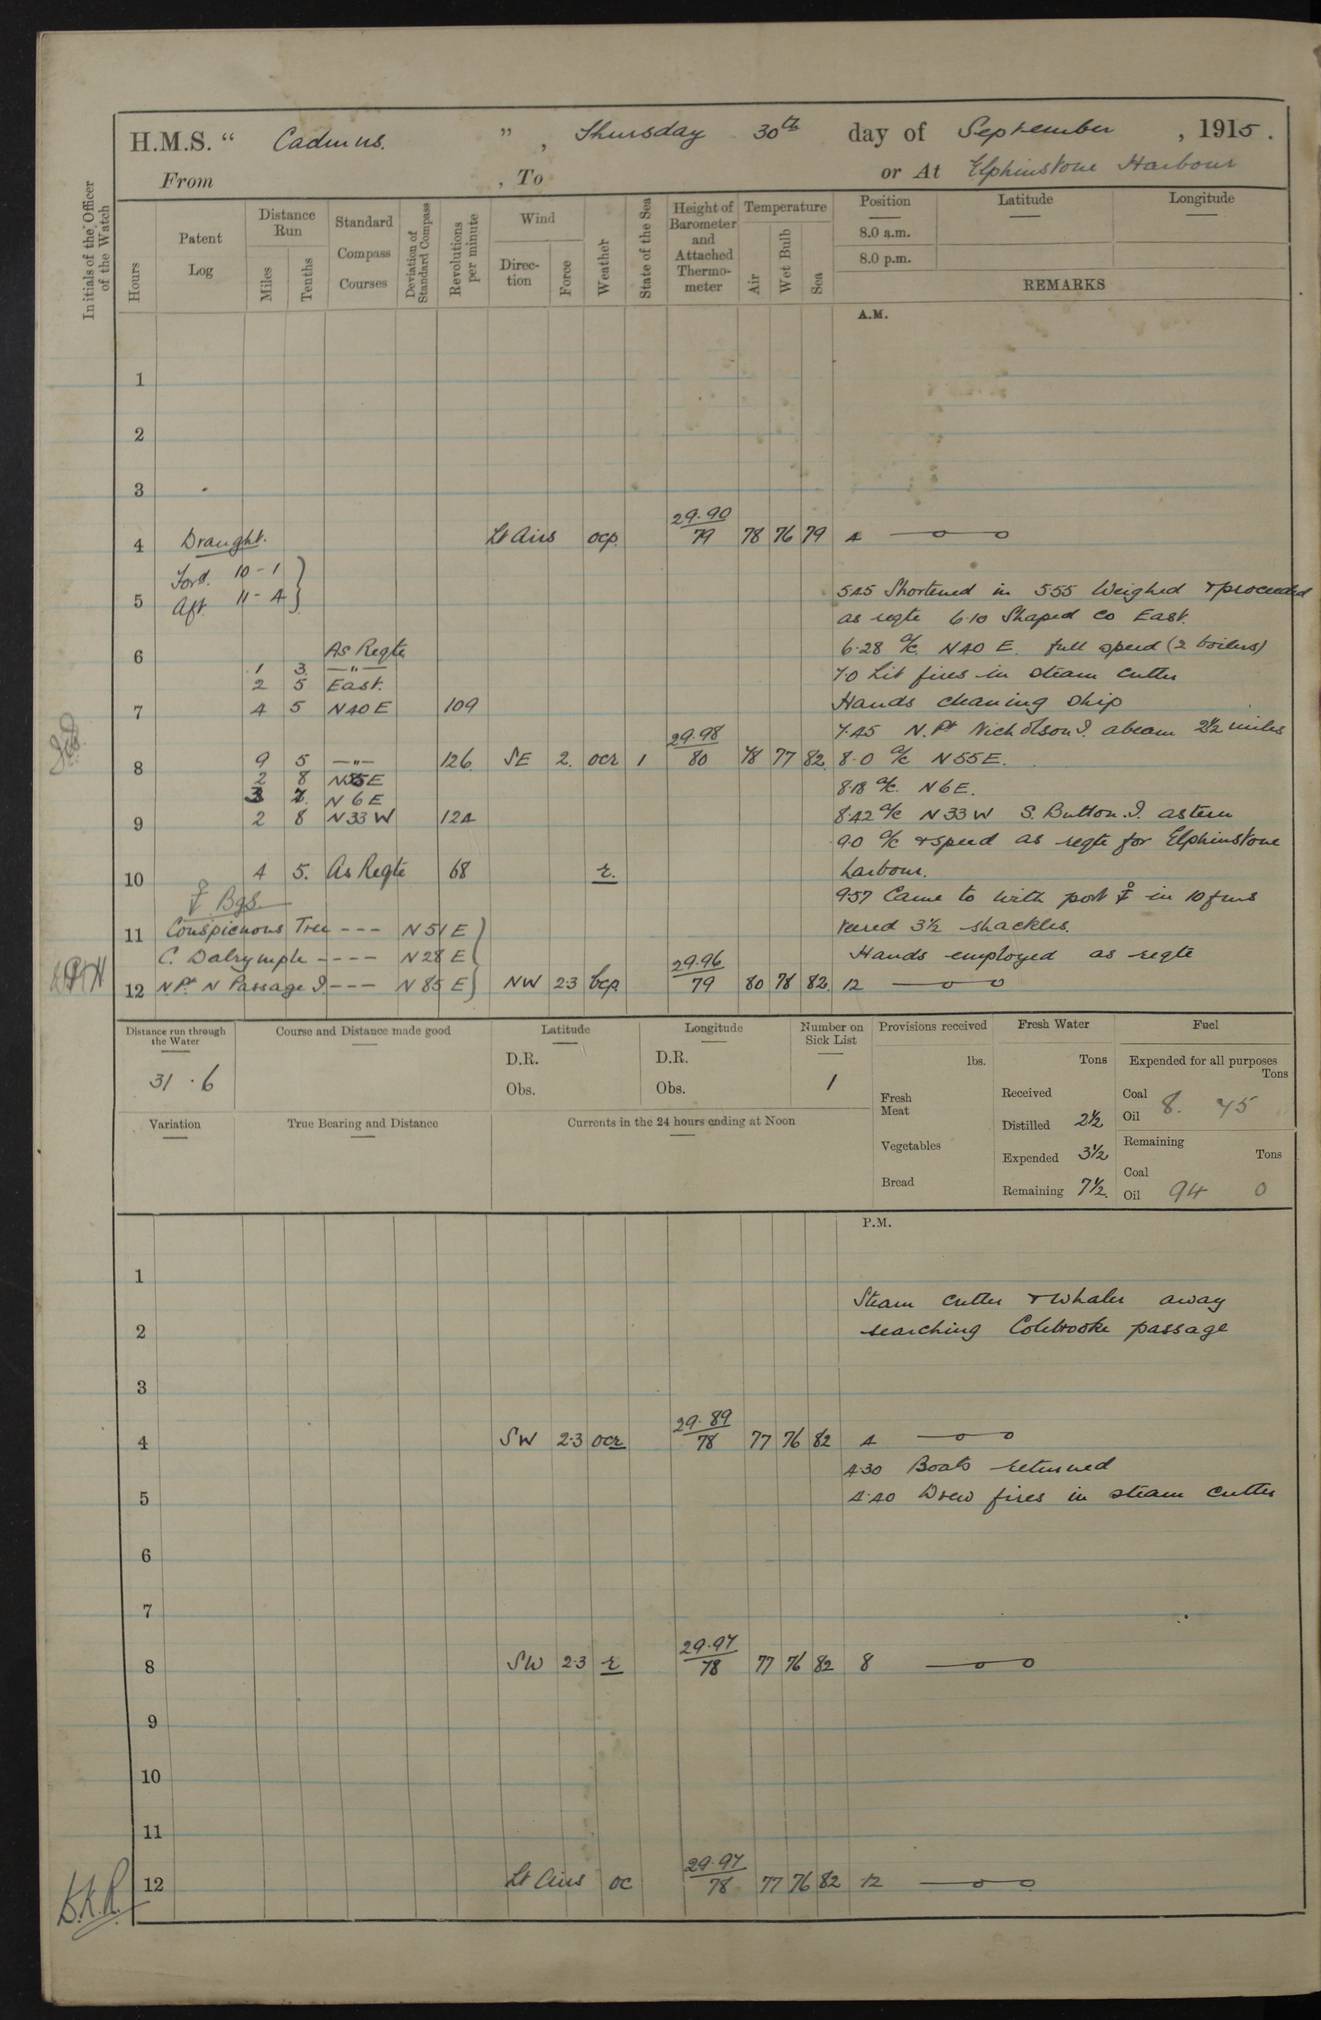 H.M.S. “ Cadmus. ” , Thursday 30th day of September , 1915.
From , To or At Elphinstone Harbour
Initials of the Officer of the Watch
Hours
Patent Log
Distance Run
Miles
Tenths
Standard Compass Courses
Deviation of Standard Compass
Revolutions per minute
Wind
Direction
Force
Weather
State of the Sea
Height of Barometer and Attached Thermometer
Temperature
Air
Wet Bulb
Sea
Position
8.0 a.m.
8.0 p.m.
Latitude
Longitude
REMARKS
A.M.
1
2
3
29.90
4 Draught. Lt Airs ocp. 79 78 76 79 4
Ford. 10 - 1
Aft. 11 - 4
5 5.45 Shortened in 5.55 Weighed & proceeded
as reqte 6.10 Shaped Co East.
6 As Reqte 6.28 a/c N40E. full speed (2 boilers)
1 3 —"— 7.0 Lit fires in steam cutter
2 5 East.
7 4 5 N40E 109 Hands cleaning ship
29.98 7.45 N. Pt Nicholson I. abeam 2½ miles
8 9 5 —"— 126 SE 2. ocr 1 80 78 77 82 8.0 a/c N55E.
2 8 N55E 8.18 a/c. N6E.
3 7. N6E
9 2 8 N33W 124 8.42 a/c N33W S. Button. I. astern
9.0 a/c & speed as reqte for Elphinstone
10 4 5. As Reqte 68 r. harbour.
Bgs. 9.57 Came to with port in 10 fms
11 Conspicuous Tree - - - N51E veered 3½ shackles.
C. Dalrymple - - - - N28E 29.96 Hands employed as reqte
12 N.Pt N Passage I. - - - N85E NW 2.3 bcp. 79 80 78 82. 12
Distance run through the Water
31.6
Course and Distance made good
Latitude
D.R.
Obs.
Longitude
D.R.
Obs.
Number on Sick List
1
Variation
True Bearing and Distance
Currents in the 24 hours ending at Noon
Provisions received
lbs.
Fresh Meat
Vegetables
Bread
Fresh Water
Tons
Received
Distilled 2½
Expended 3½
Remaining 7½.
Fuel
Expended for all purposes
Tons
Coal
Oil 8. 75
Remaining
Tons
Coal
Oil 94 0
P.M.
1
Steam cutter & Whaler away
2 searching Colebrooke passage
3
29.89
4 SW 2.3 ocr 78 77 76 82 4
4.30 Boats returned
5 4.40 Drew fires in steam cutter
6
7
29.97
8 SW 2.3 r 78 77 76 82 8
9
10
11
29.97
12 Lt Airs oc 78 77 76 82 12